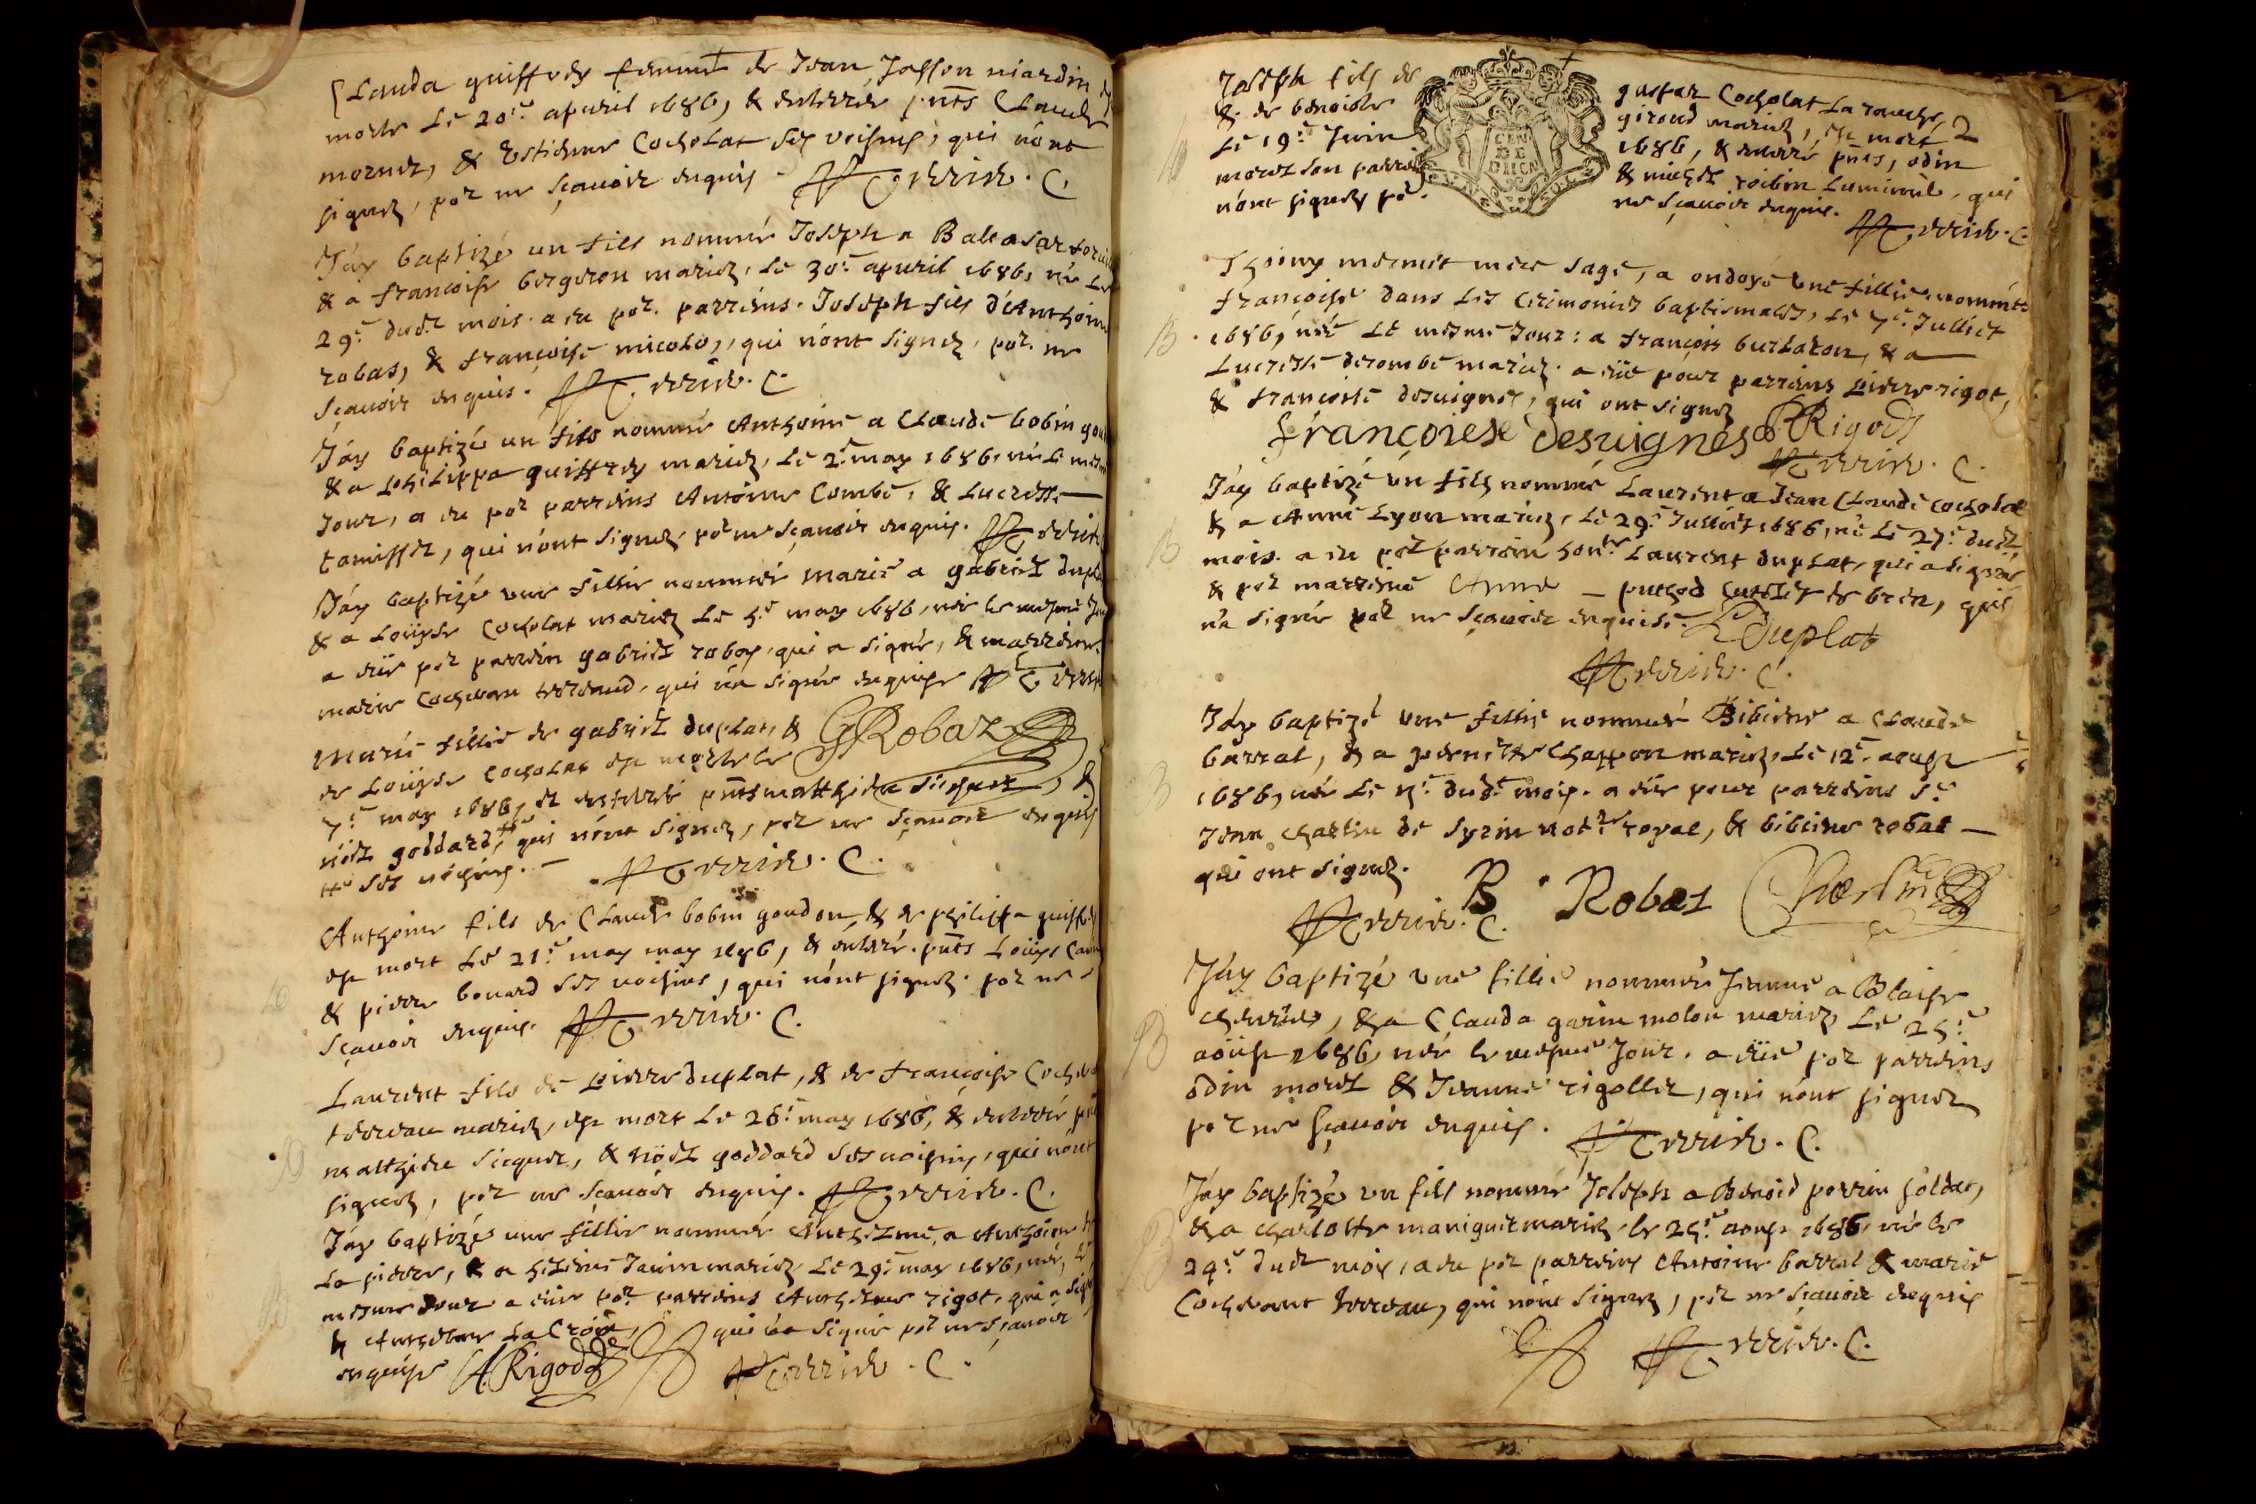 Clauda guiffrey femme de Jean Josson niardin
morte Le 20e. apuril 1686, & enterrée pnts Claude
mornet, & Estienne Cocholat ses voisins, qui n'ont
signez, por ne sçauoir enquis. Terrier. C.
J'ay baptizé un fils nommé Joseph a Baltasar
& a françoise bergeron mariez, Le 30e. apuril 1686, né Le
29e. dudt mois. a eu por. parreins. Joseph fils d'Anthoine
robas, & françoise micoloz, qui n'ont signez, por. ne
sçauoir enquis. Terrier. C.
J'ay baptizé un fils nommé Anthoine a Claude bobin
& a philippa guiffrey mariez, Le 2e. may 1686, né Le
Jour, a eu por parreins Antoine Combe, & Lucresse
tamisset, qui n'ont signez, por ne sçauoir enquis. Terrier
J'ay baptizé une fillie nommée marie a gabriel
& a Loüyse Cocholat mariez Le 5e may 1686, née le mesme
a eüe por parrein gabriel robas, qui a signé, & marreine
marie Cochouan terreaud, qui n'a signé enquise Terrier
Marie fillie de gabriel duplat, & GRobaz
de Loüyse Cocholat est morte le
7e. may 1686, et enterrée pnts matthieu sicquet, &
nöel goddard, qui n'ont signez, por ne sçauoir enquis
ses voisins. Terrier. C.
Anthoine fils de Claude bobin goudon, & de philippa
est mort Le 21e. may may 1686, & enterré. pnts Loüys
& pierre bouard ses voisins, qui n'ont signez. por ne
sçauoir enquis. Terrier. C.
Laurent fils de pierre duplat, & de françoise
terreau mariez, est mort Le 26e. may 1686, & enterré
matthieu sicquet, & nöel goddard ses voisins, qui n'ont
signez, por ne sçauoir enquis. Terrier. C.
J'ay baptizé une fillie nommée Anthelme, a Anthoine
La pierre, & a helene Janin mariez Le 29e. may 1686, née,
mesme Jour a eüe por. parreins Anthelme rigot, qui a
& Anthelme La Croix, qui n'a signé por ne sçauoir
enquise A. Rigod Terrier. C.
Joseph fils de gaspar Cocholat La
& de benoiste giroud mariez, est mort 2
Le 19e. Juin 1686, & enterré pnts, odin
morel son parrein & michel robin Luminié, qui
n'ont signez por. ne sçauoir enquis.
Terrier. C.
mermet mere sage, a ondoyé une fillie nommée
françoise dans Les Cerimonies baptismales, Le 7e. Julliet
1686, née Le mesme Jour: a françois burlaton, & a
Lucresse decombe mariez. a eüe pour parreins pierre rigot,
& françoise desuignes, qui ont signez
françoiese desuignes P Rigod
Terrier. C.
J'ay baptizé un fils nommé Laurent a Jean Claude Cocholat
& a Anne Lyon mariez, Le 29e. Julliet 1686, né Le 27e. dudt
mois. a eu por parrein honble Laurent duplat, qui a signé
& por marreine Anne puthod de bren, qui
n'a signée por ne sçauoir enquise. L Duplat
Terrier. C.
J'ay baptizé une fillie nommée Bibiene a Claude
barral, & a pernette Chappon mariez, Le 12e. aoust
1686, née Le 11e. dudt. mois. a eüe pour parreins Sr.
Jean Chastin de Syrin notre. royal, & bibiene robat
qui ont signez. B. Robas Chastin
Terrier. C.
J'ay baptizé une fillie nommée Jeanne a Blaise
, & a Clauda garin molou mariez Le 25e
aoüst 1686, née le mesme Jour. a eüe por parreins
odin morel & Jeanne rigollet, qui n'ont signez
por ne sçauoir enquis. Terrier. C.
J'ay baptizé un fils nommé Joseph a Benoid perrin soldat,
& a charlotte maniguet mariez, le 25e. aoust 1686, né le
24e. dudt mois, a eu por parreins Antoine barral & marie
Cochouant terreau, qui n'ont signez, por ne sçauoir enquis
Terrier. C.